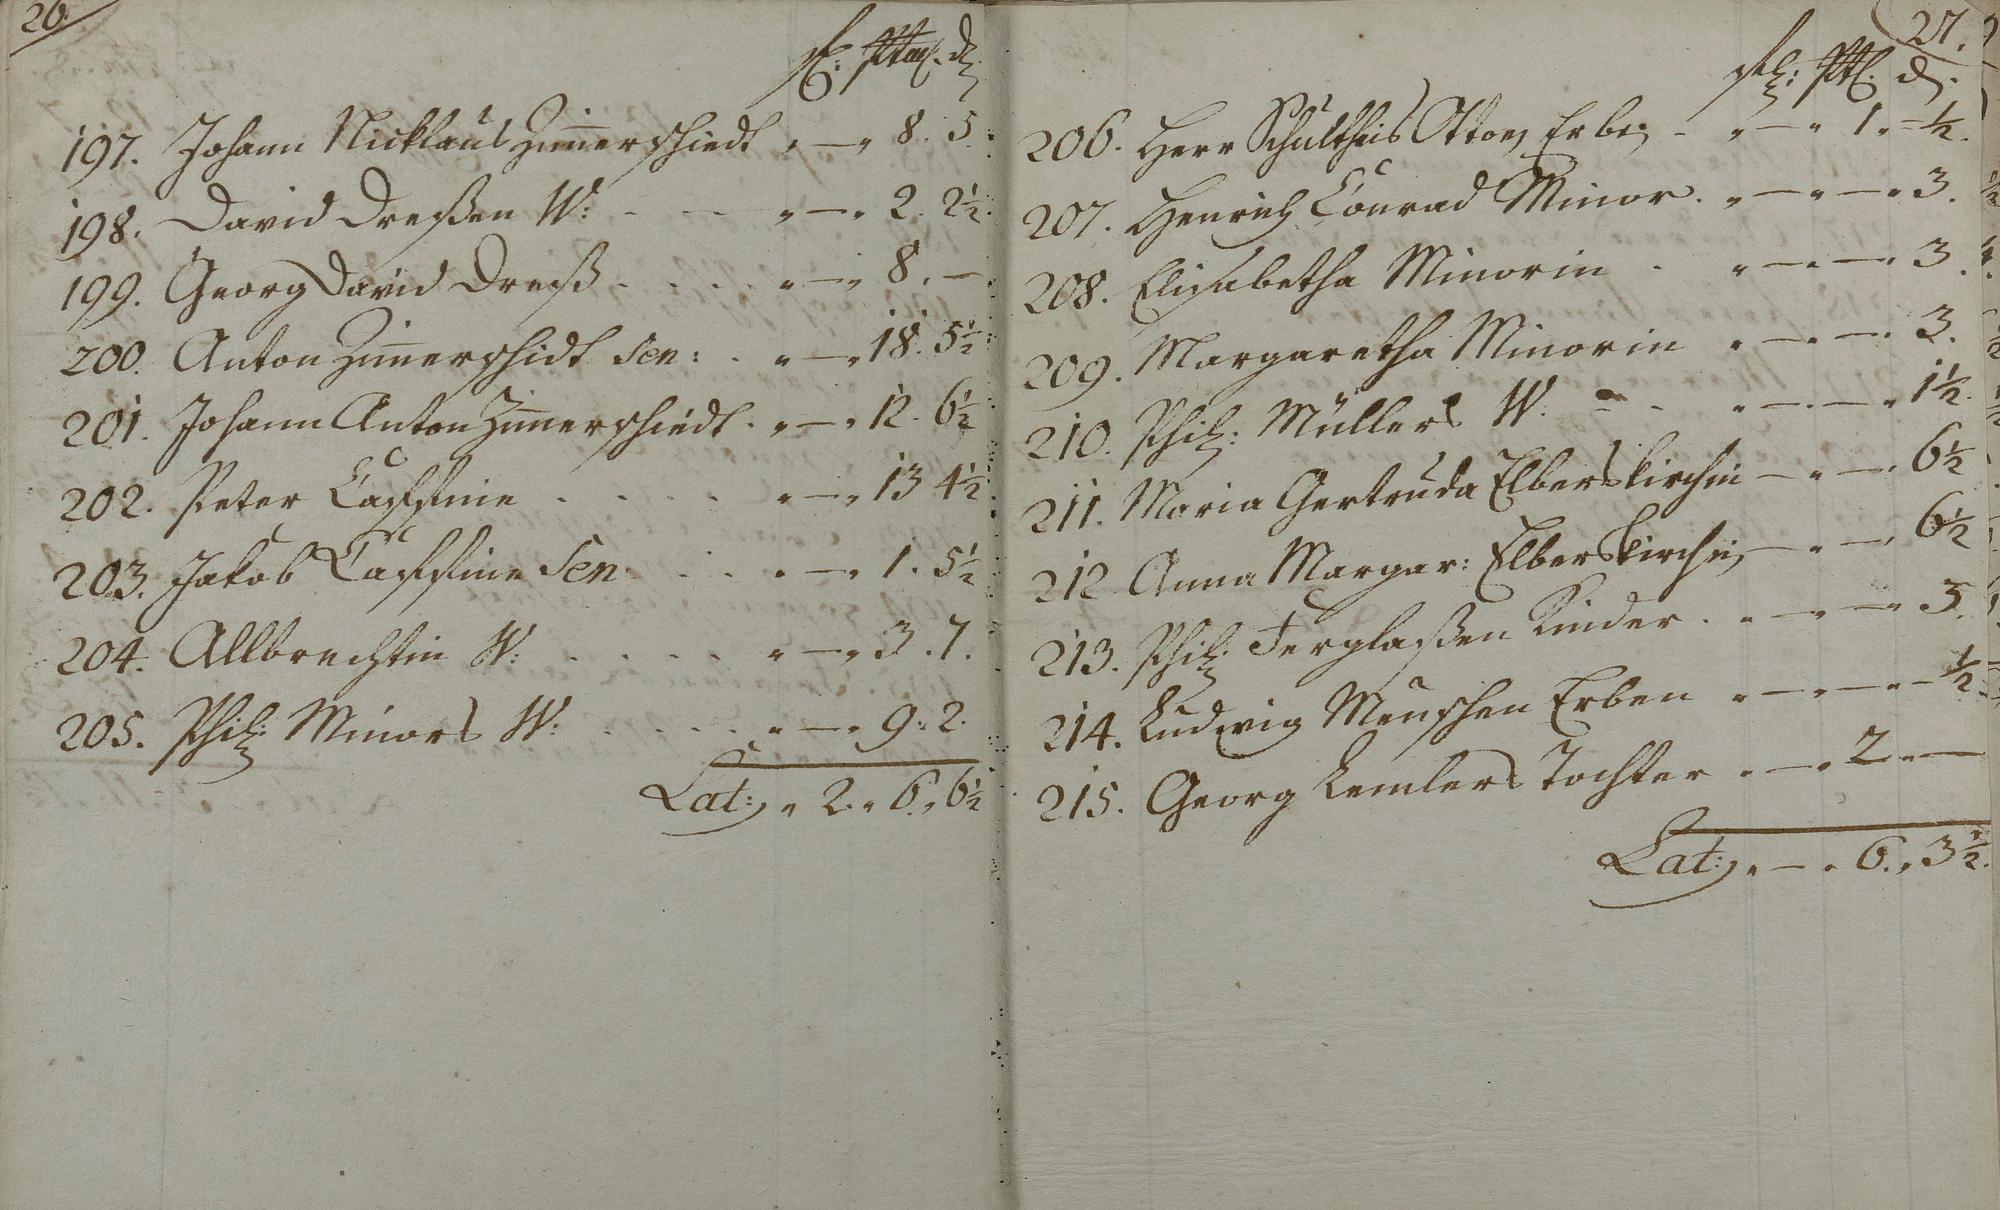 26.
fl. d.
197. Johann Nicklaus Zimerschiedt „ — „ 8. 5.
198. David Dreßen W: - — „ — „ 2. 2½.
199. Georg David Dreß . . . . „ — „ 8. —
200. Anton Zimerschidt Sen: . „ — „ 18. 5½
201. Johann Anton Zimerschiedt . „ — „ 12. 6½
202. Peter Cassine . . . . „ — „ 13 4½
203. Jakob Cassine Sen . . . „ — „ 1. 5½
204. Allbrechtin W: . . . . „ — „ 3. 7.
205. Phil: Minors W: . . . . „ — „ 9. 2.
Lat: „ 2. „ 6. „ 6½
27.
fl: d.
206. Herr Schultheis Ottoen Erben - „ — „ 1. — ½.
207. Henrich Conrad Minor. „ — „ — „ 3.
208. Elisabetha Minorin . „ — „ — „ 3.
209. Margaretha Minorin „ — „ — „ 3.
210. Phil: Müllers W: - - „ — „ — „ 1½.
211. Maria Gertruda Elberskirchin — „ — „ 6½
212 Anna Margar: Elberskirchin — „ — „ 6½
213. Phil: Ferglaßen Kinder . „ — „ — „ 5.
214. Ludwig Menschen Erben „ — „ — „ — ½.
215. Georg Lemlers Tochter „ — „ 2. —
Lat: „ — „ 6. „ 3½.